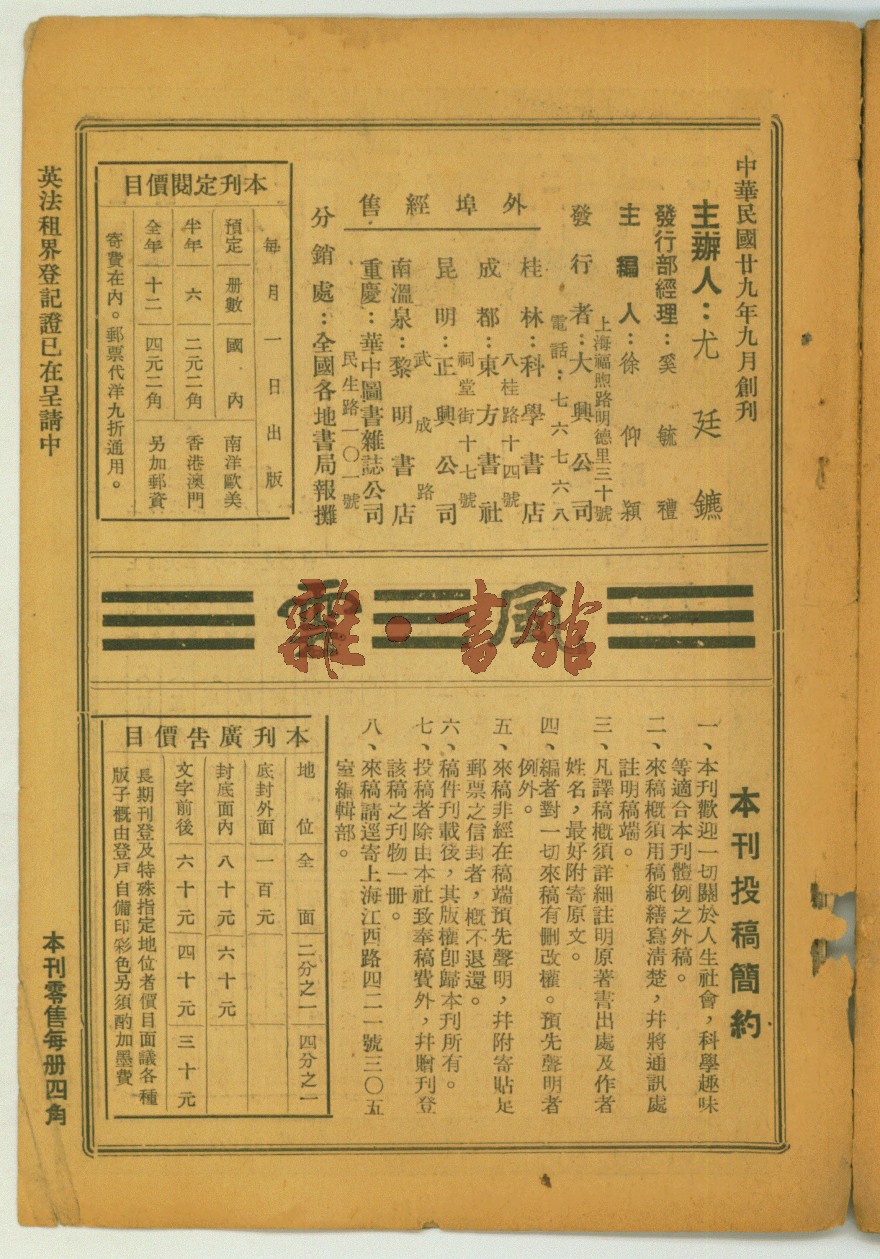 中華民國廿九年九月創刊
主辦人：尤廷鑣
發行部經理：奚毓禮
主編人：徐仰穎
上海福煦路明德里三十號
發行者：大興公司
電話：七六七六八
外埠經售
桂林：科學書店
八桂路十四號
成都：東方書社
祠堂街十七號
昆明：正興公司
武成路
南溫泉：黎明書店
重慶：華中圖書雜誌公司
民生路一〇一號
分銷處：全國各地書局報攤
本刊定閱價目
每月一日出版
預定 册數 國內 南洋歐美
半年 六 二元二角 香港澳門
全年 十二 四元二角 另加郵資
寄費在內。郵票代洋九折通用。
英法租界登記證已在呈請中
風雲
雜·書館
本刊投稿簡約
一、本刊歡迎一切關於人生社會，科學趣味
等適合本刊體例之外稿。
二、來稿槪須用稿紙繕寫淸楚，幷將通訊處
註明稿端。
三、凡譯稿槪須詳細註明原著書出處及作者
姓名，最好附寄原文。
四、編者對一切來稿有刪改權。預先聲明者
例外。
五、來稿非經在稿端預先聲明，幷附寄貼足
郵票之信封者，槪不退還。
六、稿件刊載後，其版權卽歸本刊所有。
七、投稿者除由本社致奉稿費外，幷贈刊登
該稿之刊物一册。
八、來稿請逕寄上海江西路四二一號三〇五
室編輯部。
本刊廣告價目
地位 全面 二分之一 四分之一
底封外面 一百元
封底面內 八十元 六十元
文字前後 六十元 四十元 三十元
長期刊登及特殊指定地位者價目面議各種
版子槪由登戶自備印彩色另須酌加墨費
本刊零售每册四角